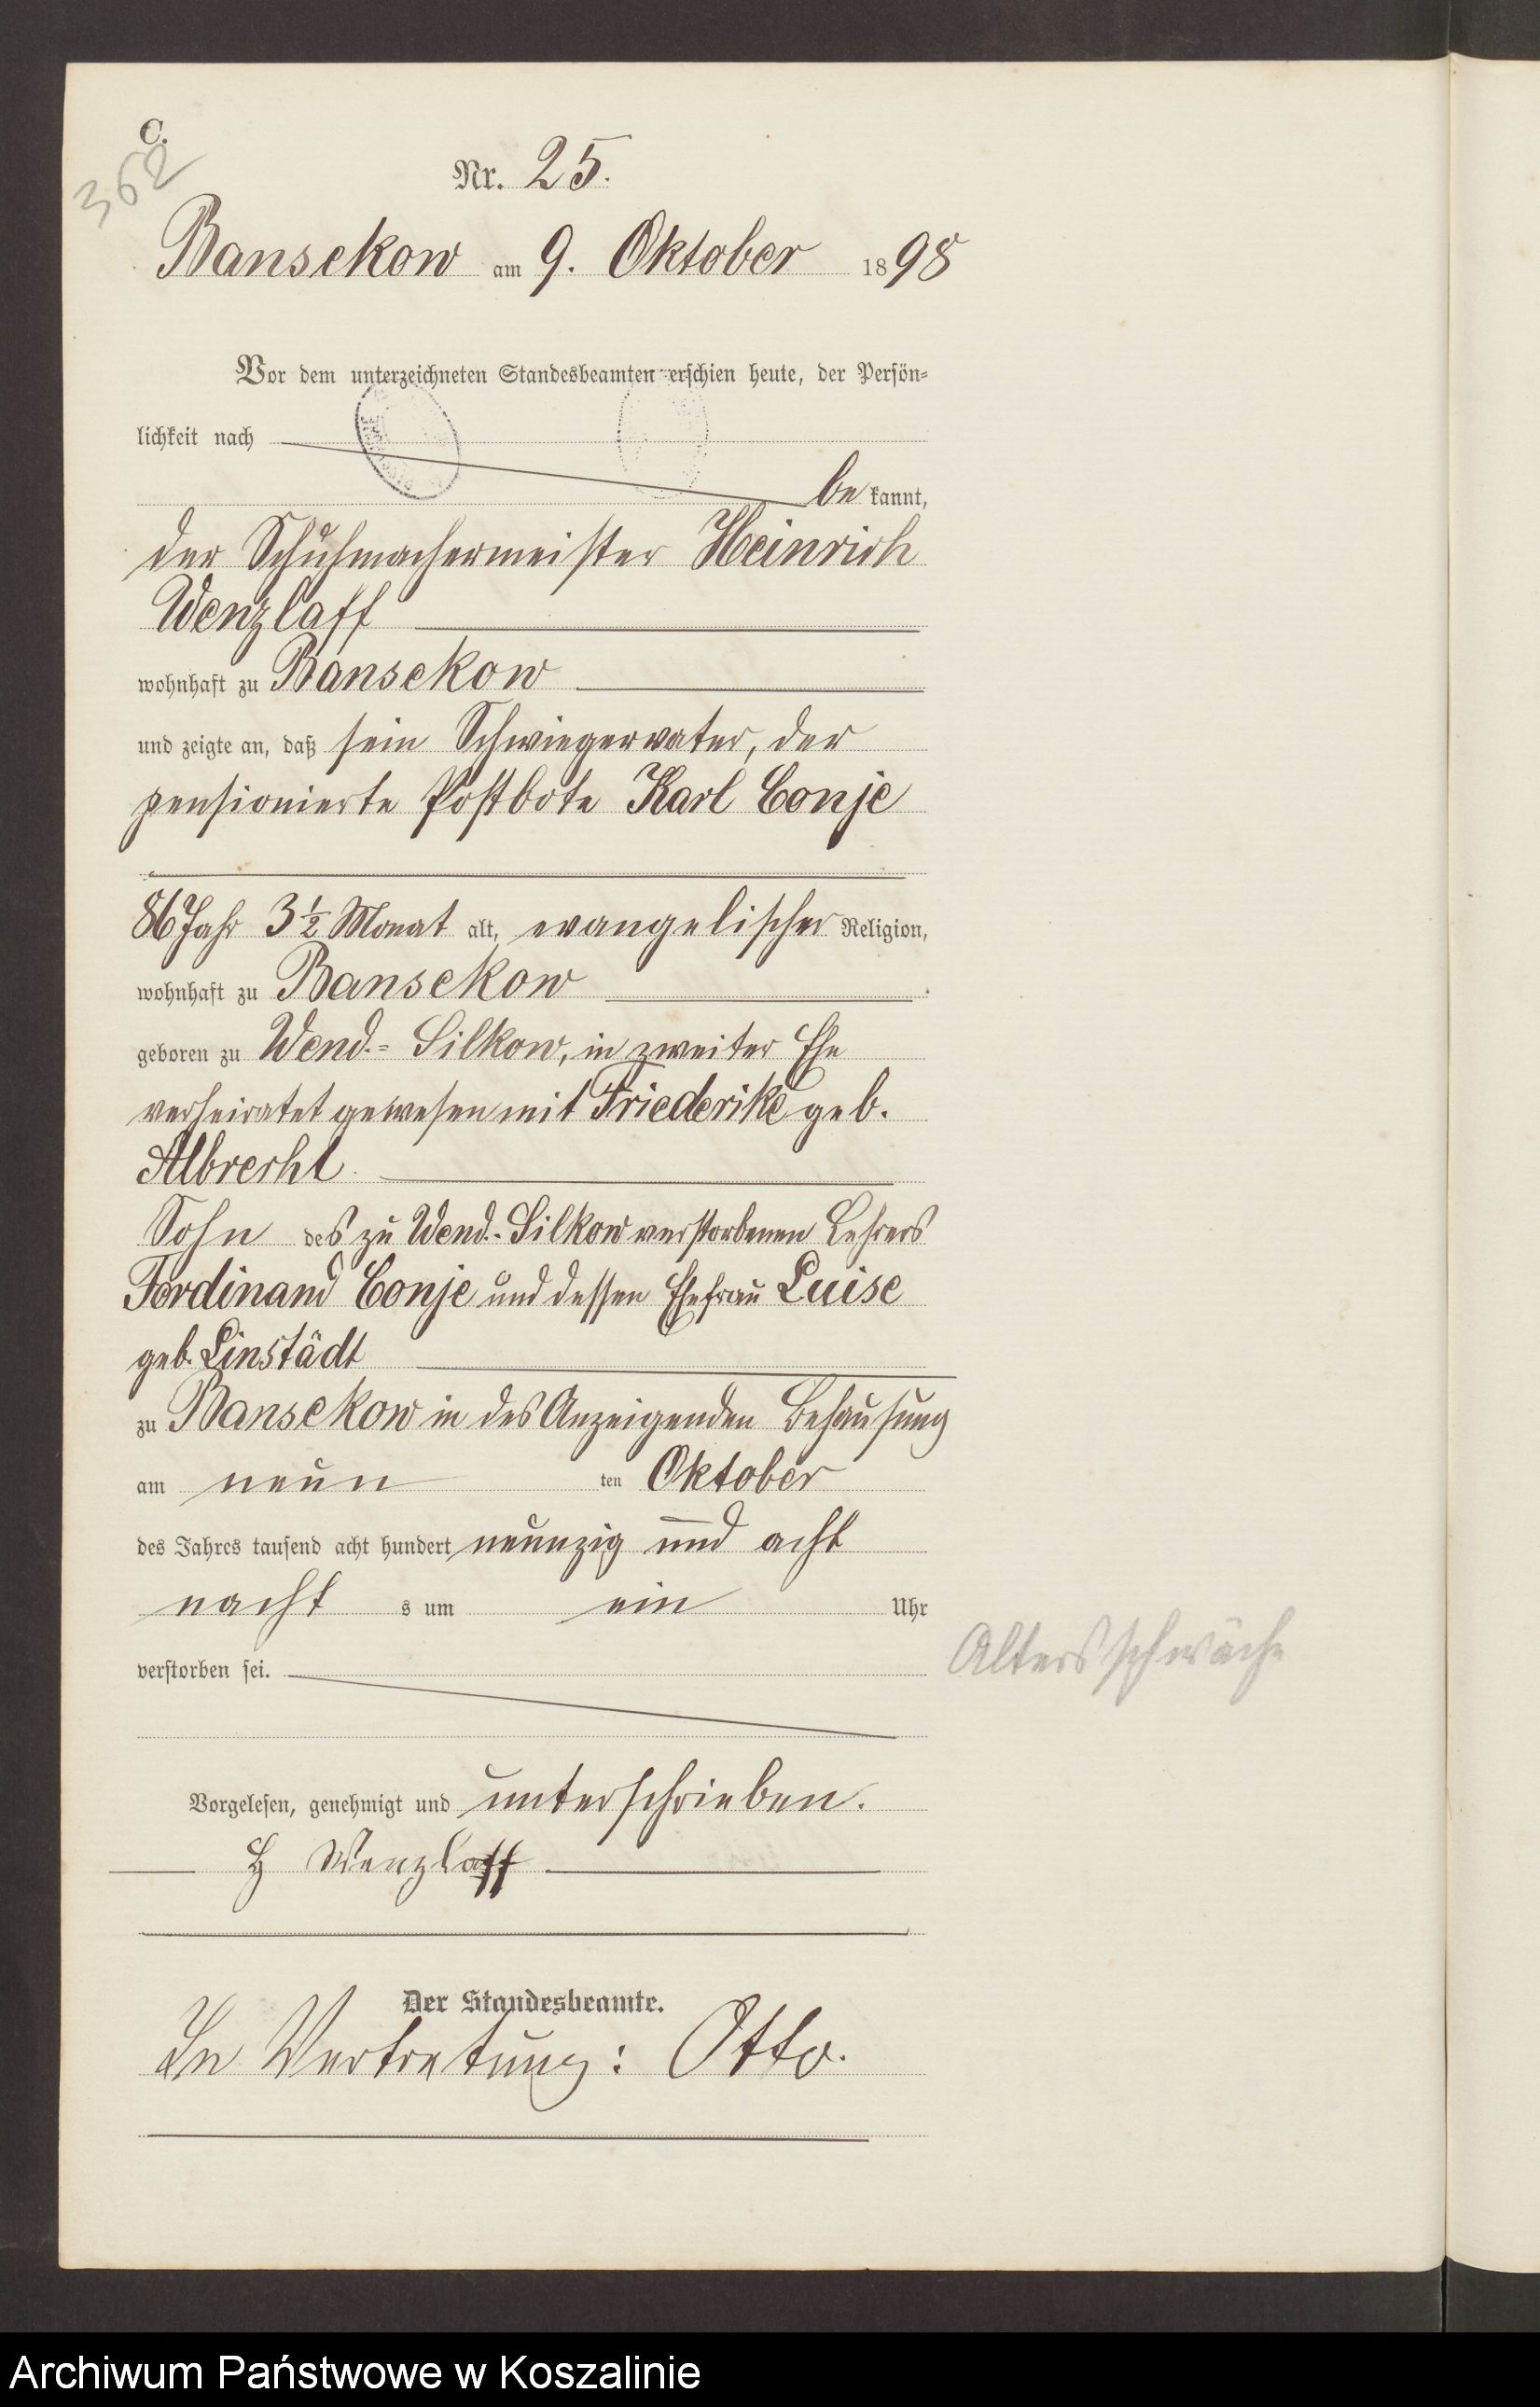 C.
362
Nr. 25.
Bansekow am 9. Oktober 1898
Vor dem unterzeichneten Standesbeamten erschien heute, der Persön-
lichkeit nach
be kannt,
der Schuhmachermeister Heinrich
Wenzlaff
wohnhaft zu Bansekow
und zeigte an, daß sein Schwiegervater, der
pensionierte Postbote Karl Conje
86 Jahr 3 ½ Monat alt, evangelischer Religion,
wohnhaft zu Bansekow
geboren zu Wend.= Silkow, in zweiter Ehe
verheiratet gewesen mit Friederike geb.
Albrecht
Sohn des zu Wend.- Silkow verstorbenen Lehrers
Ferdinand Conje und dessen Ehefrau Luise
geb. Linstädt
zu Bansekow in des Anzeigenden Behausung
am neun ten Oktober
des Jahres tausend acht hundert neunzig und acht
nacht s um ein Uhr
verstorben sei.
Altersschwäche
Vorgelesen, genehmigt und unterschrieben.
H Wenzlaff
Der Standesbeamte.
In Vertretung: Otto.
Archiwum Państwowe w Koszalinie